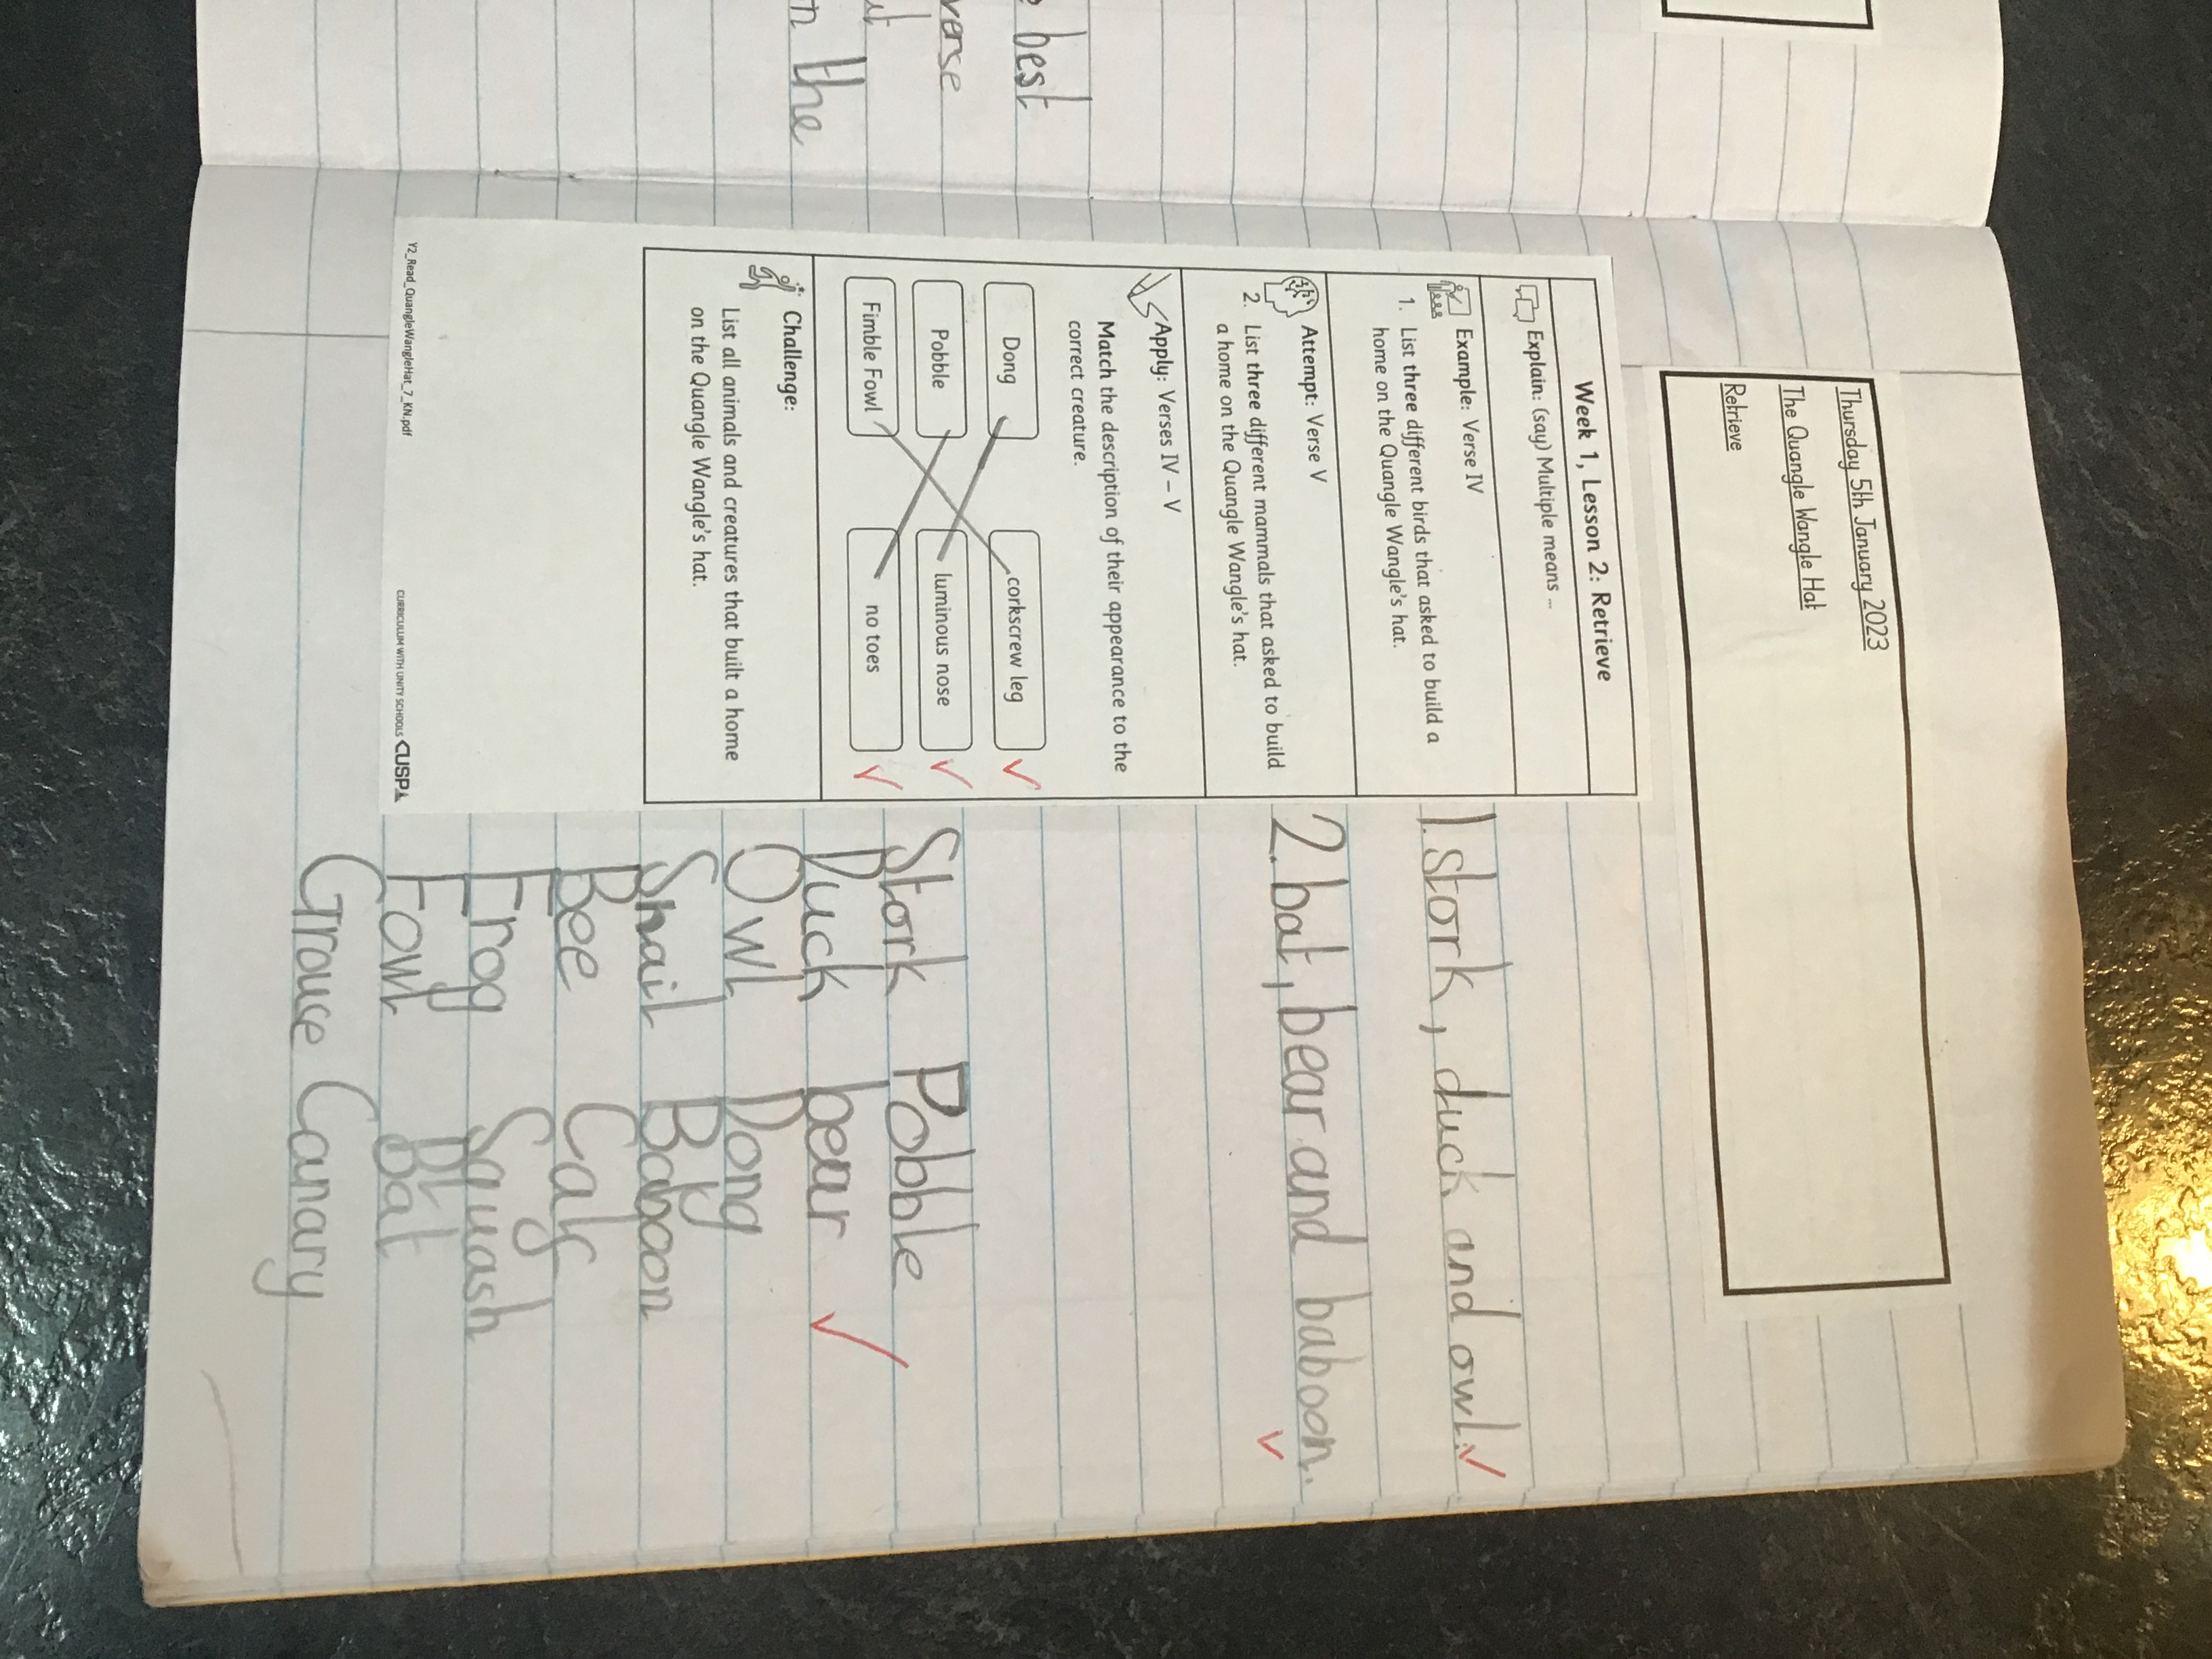 best
verse
n the
Thursday 5th January 2023
The Quangle Wangle Hat
Retrieve
Week 1, Lesson 2: Retrieve
Explain: (say) Multiple means ...
Example: Verse IV
1. List three different birds that asked to build a
home on the Quangle Wangle's hat.
Attempt: Verse V
2. List three different mammals that asked to build
a home on the Quangle Wangle's hat.
Apply: Verses IV – V
Match the description of their appearance to the
correct creature.
Dong corkscrew leg
Pobble luminous nose
Fimble Fowl no toes
Challenge:
List all animals and creatures that built a home
on the Quangle Wangle's hat.
Y2_Read_QuangleWangleHat_7_KN.pdf CURRICULUM WITH UNITY SCHOOLS CUSP
1. Stork, duck and owl.
2. bat, bear and baboon.
Stork Pobble
Duck bear
Owl Dong
Snail Baboon
Bee Calf
Frog Squash
Fowl Bat
Grouce Canary